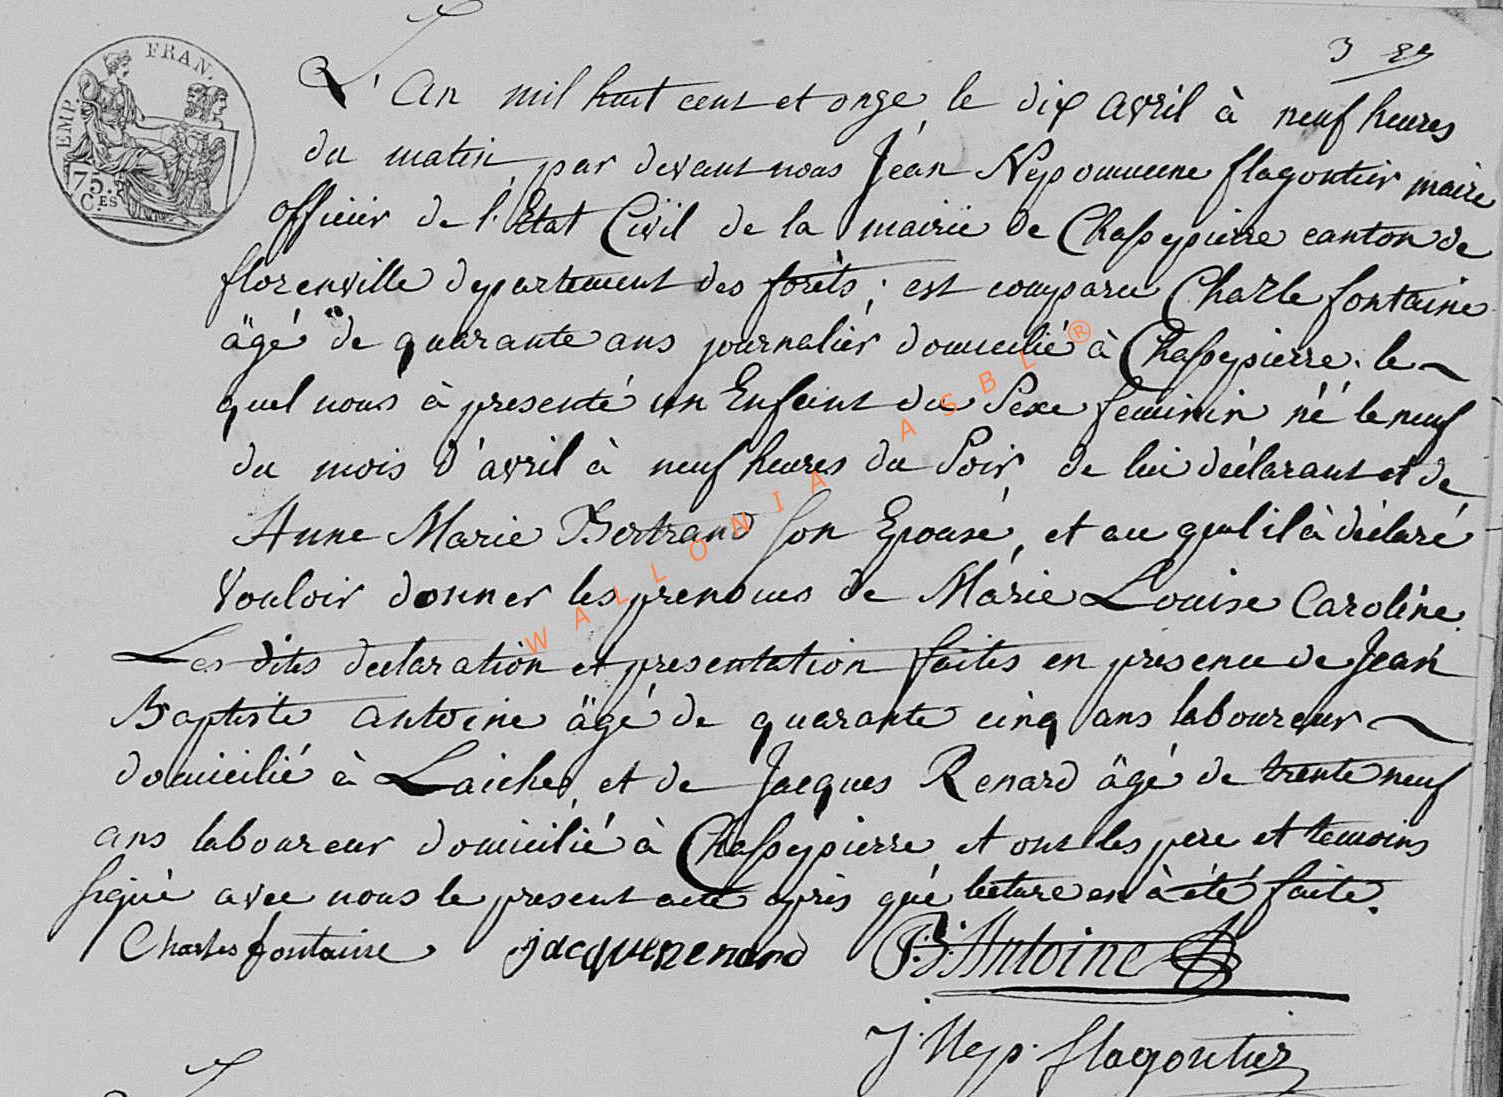 EMP. FRAN.
75. C.ES
L'an mil huit cent et onze le dix avril à neuf heures
du matin par devant nous Jéan Nepomucene flagontier maire
officier de l'Etat Civil de la mairie de Chassepierre canton de
florenville departement des forêts; est comparu Charle fontaine
âgé de quarante ans journaliér domicilié à Chassepierre. le
quel nous à presenté un Enfant du Sexe feminin né le neuf
du mois d'avril à neuf heures du Soir de lui déclarant et de
Anne Marie Bertrand son Epouse, et au quel il à déclaré
Vouloir donner les prenoms de Marie Louise Caroline.
Les dites declaration et presentation faites en presence de Jean
Baptiste antoine âgé de quarante cinq ans laboureur
domicilié à Laiche, et de Jacques Renard âgé de trente neuf
ans laboureur domicilié à Chassepierre et ont les pere et temoins
signé avec nous le present acte apris qué lecture en à été faite.
Charles fontaine jacque renard J. B. Antoine
J. Nep. flagontier
WALLONIA ASBL ®